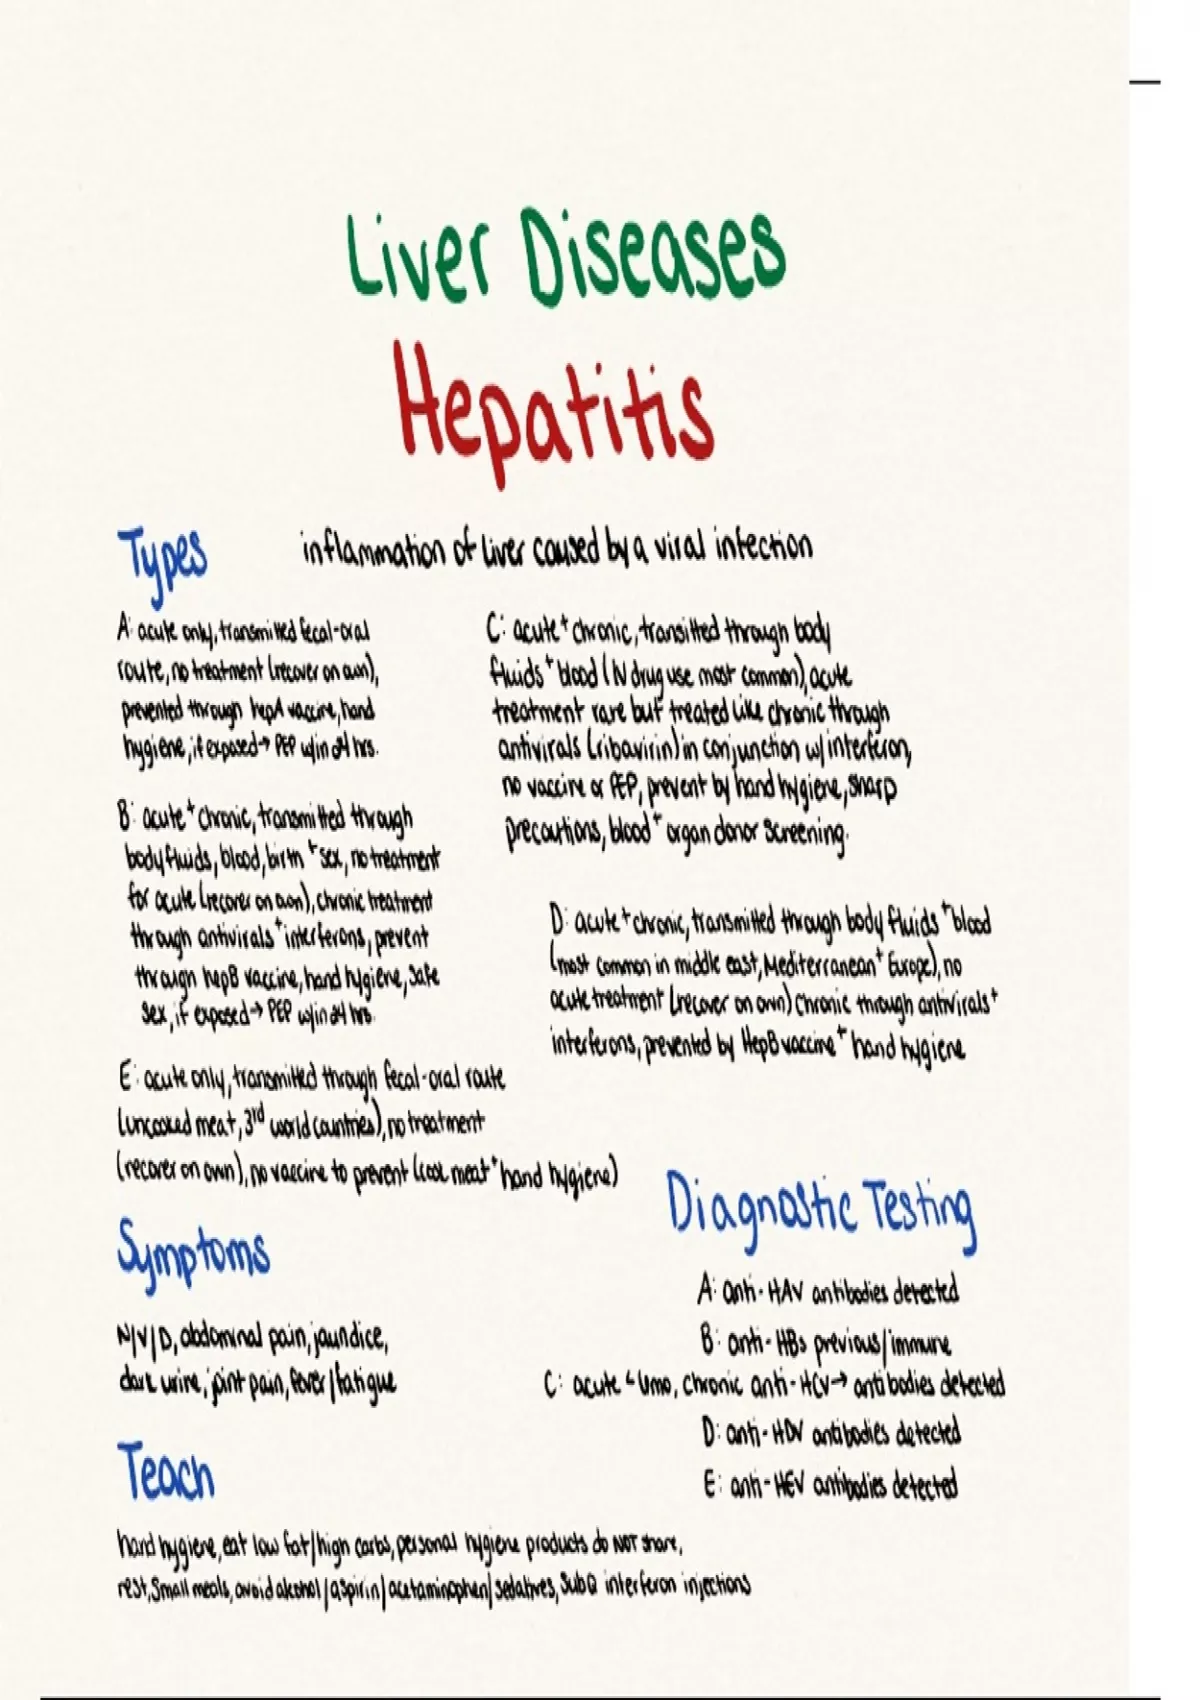 Liver Diseases
Hepatitis
Types
inflammation of liver caused by a viral infection
A: acute only, transmitted fecal-oral
route, no treatment (recover on own),
prevented through hepA vaccine, hand
hygiene, if exposed → PEP w/in 24 hrs.
B: acute + chronic, transmitted through
body fluids, blood, birth + sex, no treatment
for acute (recover on own), chronic treatment
through antivirals + interferons, prevent
through hepB vaccine, hand hygiene, safe
sex, if exposed → PEP w/in 24 hrs.
C: acute + chronic, transitted through body
fluids + blood (IV drug use most common), acute
treatment rare but treated like chronic through
antivirals (ribavirin) in conjunction w/ interferon,
no vaccine or PEP, prevent by hand hygiene, sharp
precautions, blood + organ donor screening.
D: acute + chronic, transmitted through body fluids + blood
(most common in middle east, Mediterranean + Europe), no
acute treatment (recover on own) chronic through antivirals +
interferons, prevented by HepB vaccine + hand hygiene
E: acute only, transmitted through fecal-oral route
(uncooked meat, 3rd world countries), no treatment
(recover on own), no vaccine to prevent (cook meat + hand hygiene)
Symptoms
N/V/D, abdominal pain, jaundice,
dark urine, joint pain, fever/fatigue
Diagnostic Testing
A: anti-HAV antibodies detected
B: anti-HBs previous/immune
C: acute < 6mo, chronic anti-HCV → antibodies detected
D: anti-HDV antibodies detected
E: anti-HEV antibodies detected
Teach
hand hygiene, eat low fat/high carbs, personal hygiene products do NOT share,
rest, small meals, avoid alcohol/aspirin/acetaminophen/sedatives, subQ interferon injections